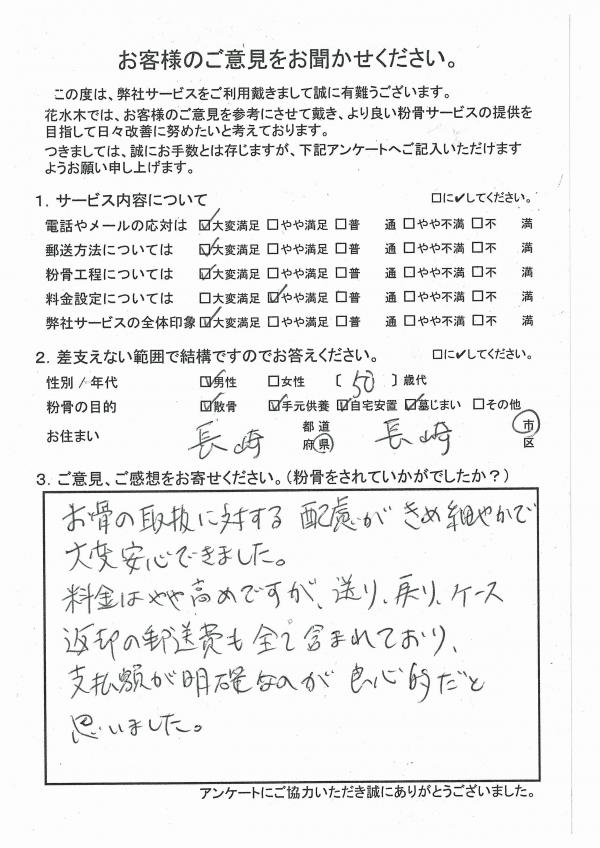 お客様のご意見をお聞かせください。
この度は、弊社サービスをご利用戴きまして誠に有難うございます。
花水木では、お客様のご意見を参考にさせて戴き、より良い粉骨サービスの提供を
目指して日々改善に努めたいと考えております。
つきましては、誠にお手数とは存じますが、下記アンケートへご記入いただけます
ようお願い申し上げます。
1. サービス内容について □に✔してください。
電話やメールの応対は ☑大変満足 □やや満足 □普 通 □やや不満 □不 満
郵送方法については ☑大変満足 □やや満足 □普 通 □やや不満 □不 満
粉骨工程については ☑大変満足 □やや満足 □普 通 □やや不満 □不 満
料金設定については □大変満足 ☑やや満足 □普 通 □やや不満 □不 満
弊社サービスの全体印象 ☑大変満足 □やや満足 □普 通 □やや不満 □不 満
2. 差支えない範囲で結構ですのでお答えください。 □に✔してください。
性別/年代 ☑男性 □女性 〔 50 〕歳代
粉骨の目的 ☑散骨 ☑手元供養 ☑自宅安置 ☑墓じまい □その他
お住まい 長崎 都道府県 長崎 市区
3. ご意見、ご感想をお寄せください。(粉骨をされていかがでしたか?)
お骨の取扱に対する配慮がきめ細やかで
大変安心できました。
料金はやや高めですが、送り、戻り、ケース
返却の郵送費も全て含まれており、
支払額が明確なのが良心的だと
思いました。
アンケートにご協力いただき誠にありがとうございました。